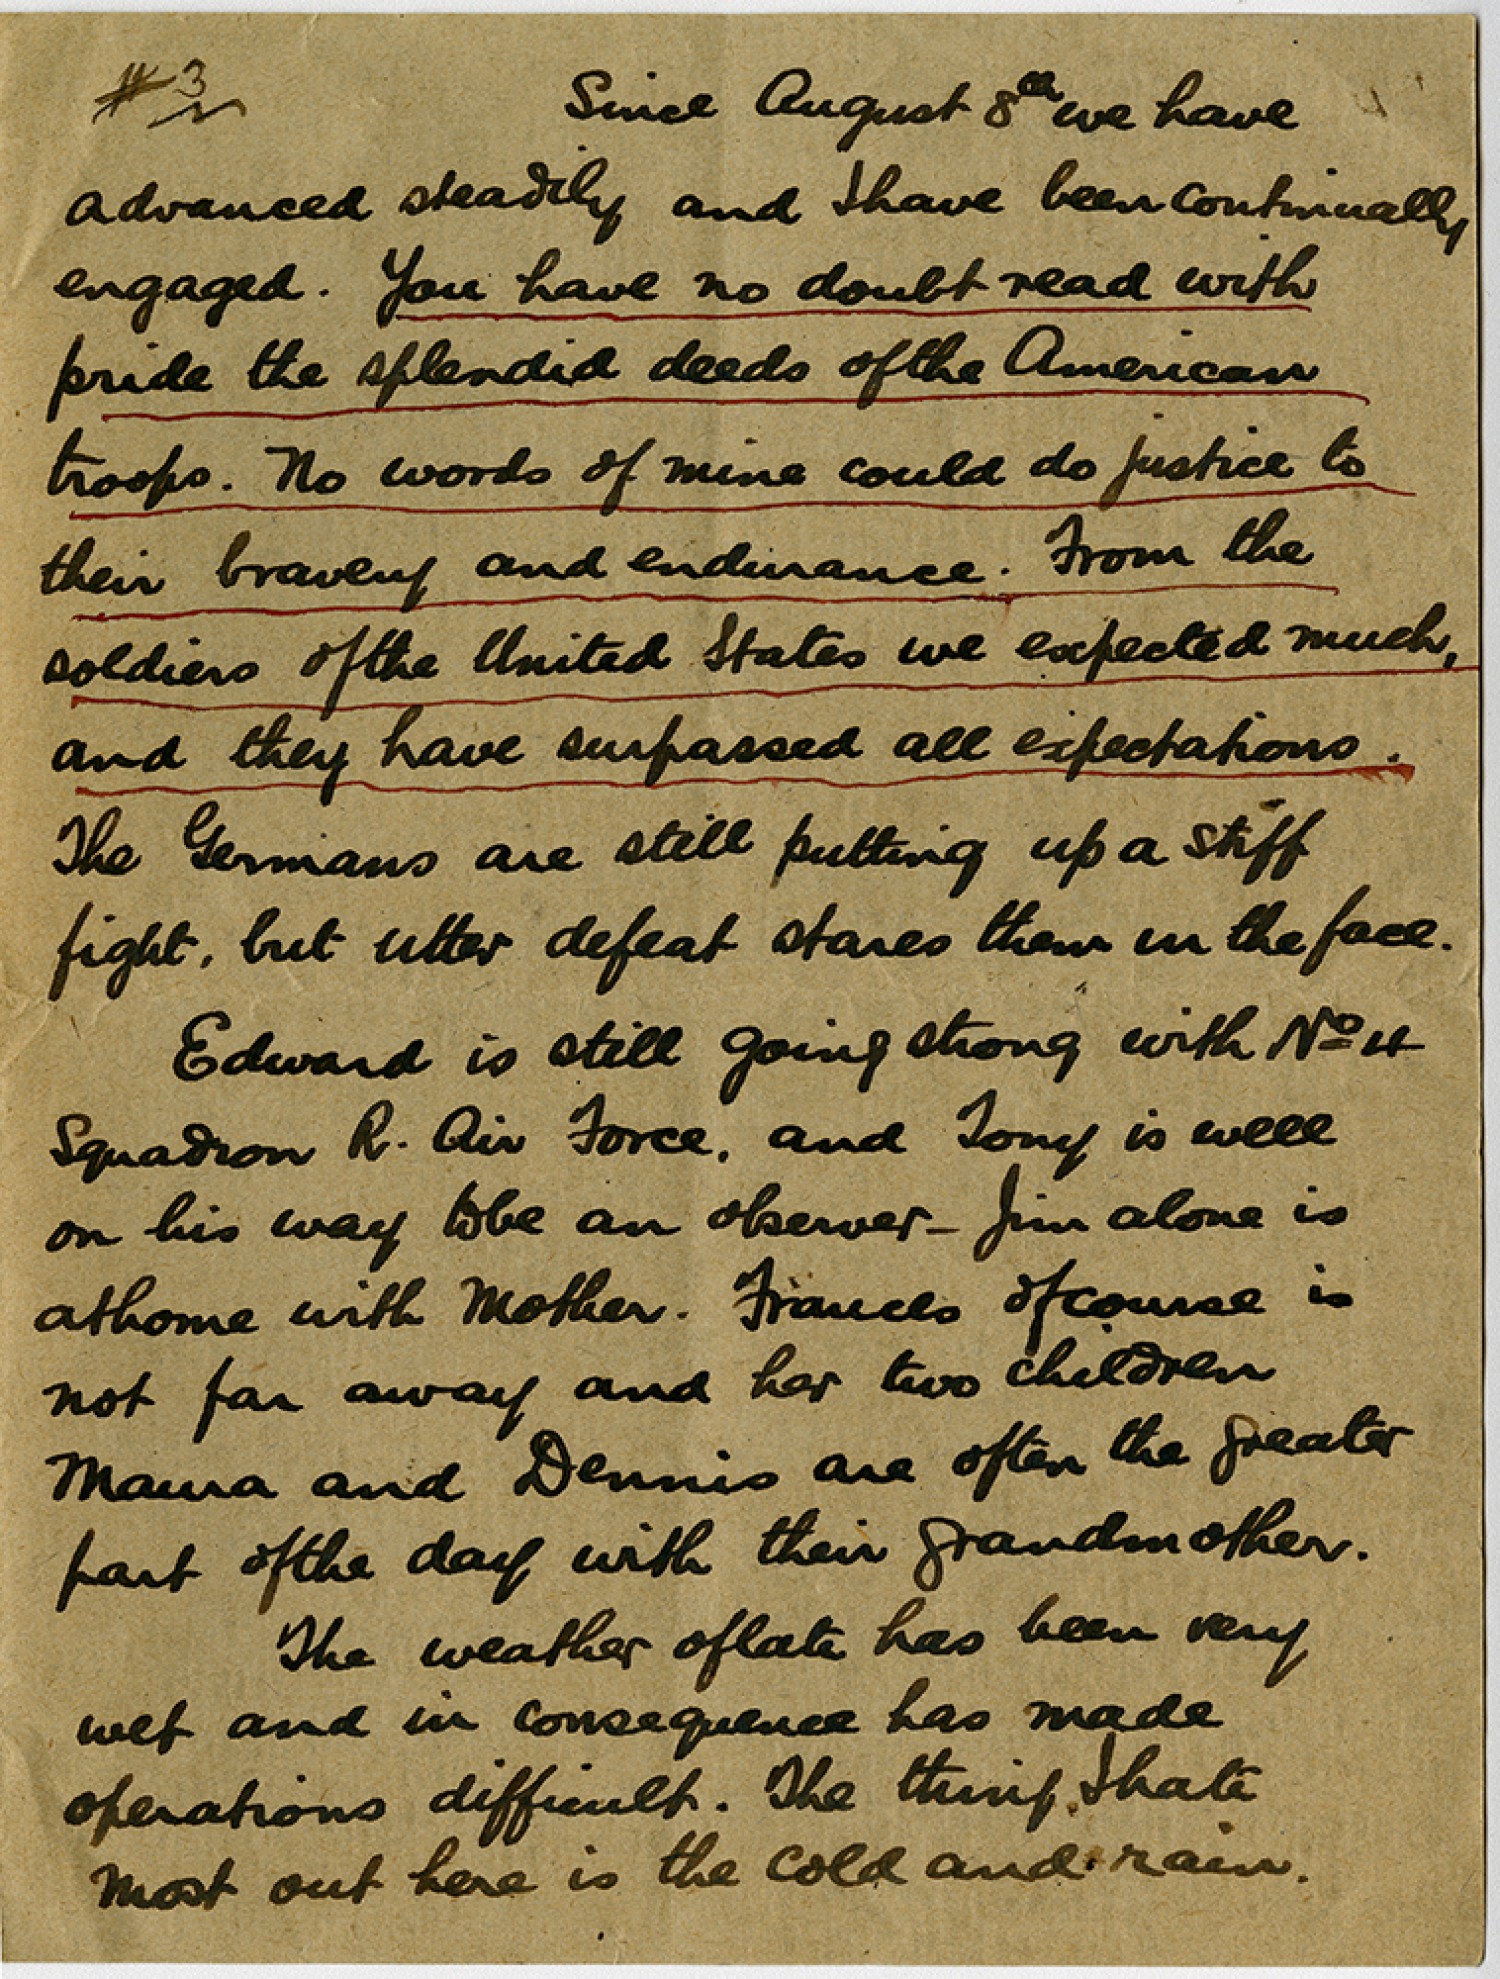 #3
Since August 8th we have
advanced steadily and I have been continually
engaged. You have no doubt read with
pride the splendid deeds of the American
troops. No words of mine could do justice to
their bravery and endurance. From the
soldiers of the United States we expected much,
and they have surpassed all expectations.
The Germans are still putting up a stiff
fight, but utter defeat stares them in the face.
Edward is still going strong with No 4
Squadron R. Air Force, and Tony is well
on his way to be an observer – Jim alone is
at home with Mother. Frances of course is
not far away and her two children
Maura and Dennis are often the greater
part of the day with their grandmother.
The weather of late has been very
wet and in consequence has made
operations difficult. The thing I hate
most out here is the cold and rain.